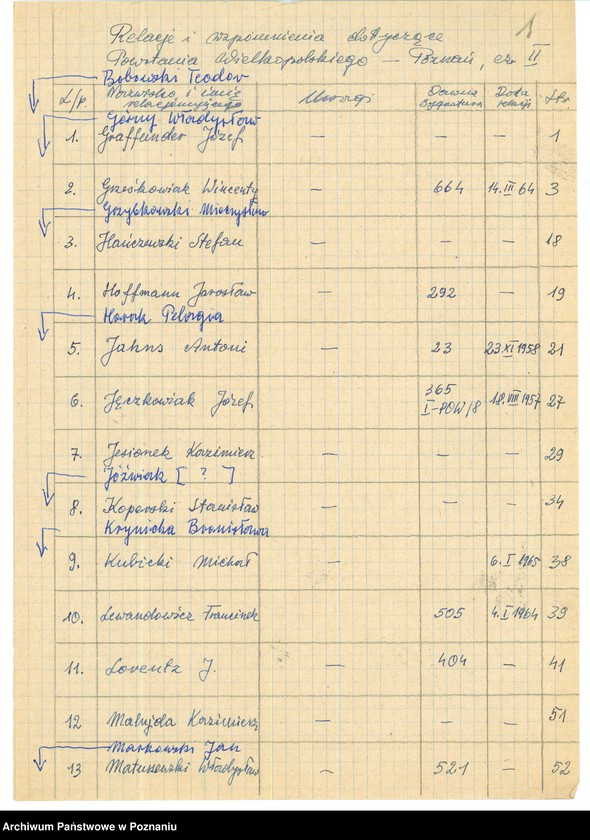 1
Relacje i wspomnienia dotyczące
Powstania Wielkopolskiego — Poznań, cz. II
Bobowski Teodor
L/p. Nazwisko i imię relacjonującego Uwagi Dawna Sygnatura Data relacji Str.
Górny Władysław
1. Graffender Józef — — — 1
2. Grześkowiak Wincenty — 664 14.III 64 3
Grzybkowski Mieczysław
3. Hańczewski Stefan — — — 18
4. Hoffmann Jarosław — 292 19
Horak Pelagia
5. Jahns Antoni — 23 23.XI 1958 21
6. Jęczkowiak Józef 365 I-POW/8 18.VIII 1957 27
7. Jesionek Kazimierz — — — 29
Jóźwiak [ ? ]
8. Koperski Stanisław — — — 34
Krynicka Bronisława
9. Kubicki Michał — 6.I 1965 38
10. Lewandowicz Franciszek 505 4.I 1964 39
11. Lorentz J. — 404 — 41
12 Malujda Kazimierz — — — 51
Markowski Jan
13 Matuszewski Władysław — 521 — 52
Archiwum Państwowe w Poznaniu